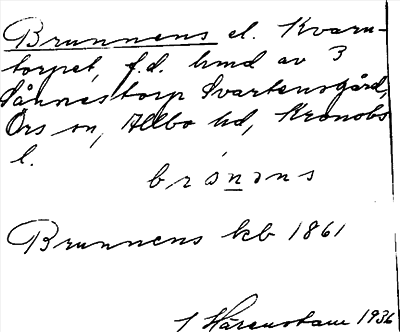 Brunnens el. Kvarn-
torpet, f.d. hmd av 3
Sånnestorp Svartensgård,
Örs sn, Allbo hd, Kronobs
l.
Brunnens kb 1861
1 Härenstam 1936